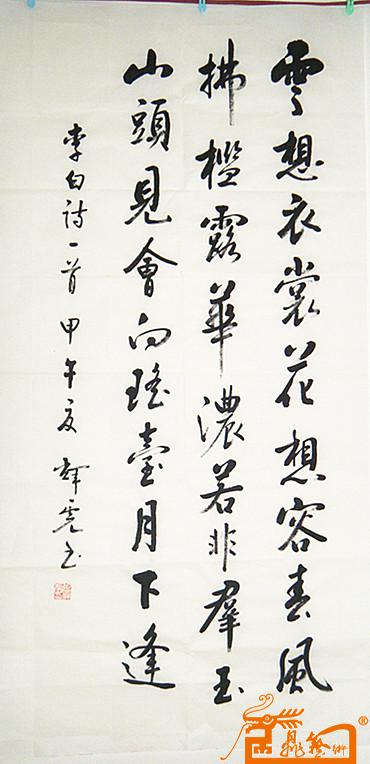 雲想衣裳花想容春風
拂檻露華濃若非羣玉
山頭見會向瑤臺月下逢
李白诗一首 甲午夏 书